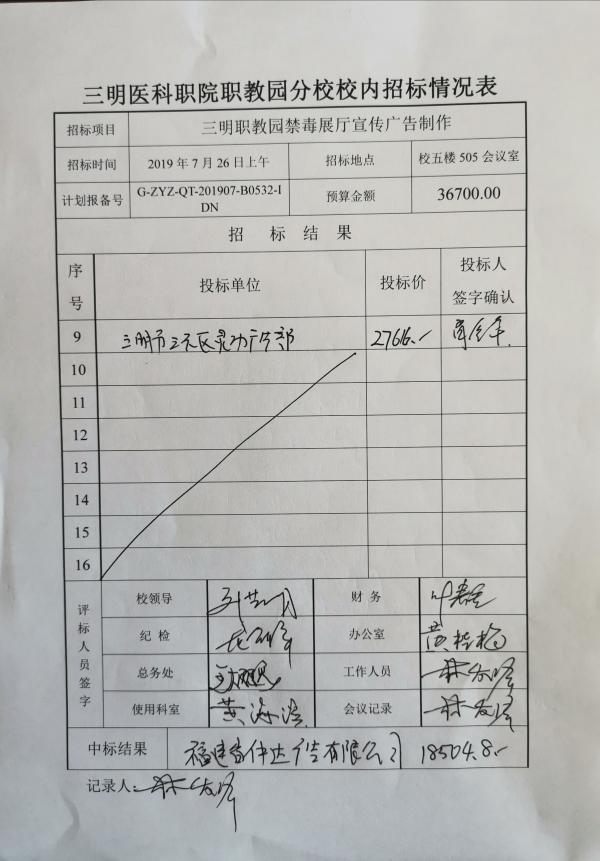 三明医科职院职教园分校校内招标情况表
招标项目 三明职教园禁毒展厅宣传广告制作
招标时间 2019 年 7 月 26 日上午 招标地点 校五楼 505 会议室
计划报备号 G-ZYZ-QT-201907-B0532-I 预算金额 36700.00
DN
招 标 结 果
序 投标单位 投标价 投标人
号 签字确认
9 三明市三元区灵动广告部 27616.-
10
11
12
13
14
15
16
评标人员签字
校领导 财 务
纪 检 办公室 黄桂梅
总务处 工作人员
使用科室 黄 会议记录
中标结果 福建 达广告有限公司 18504.8.-
记录人: